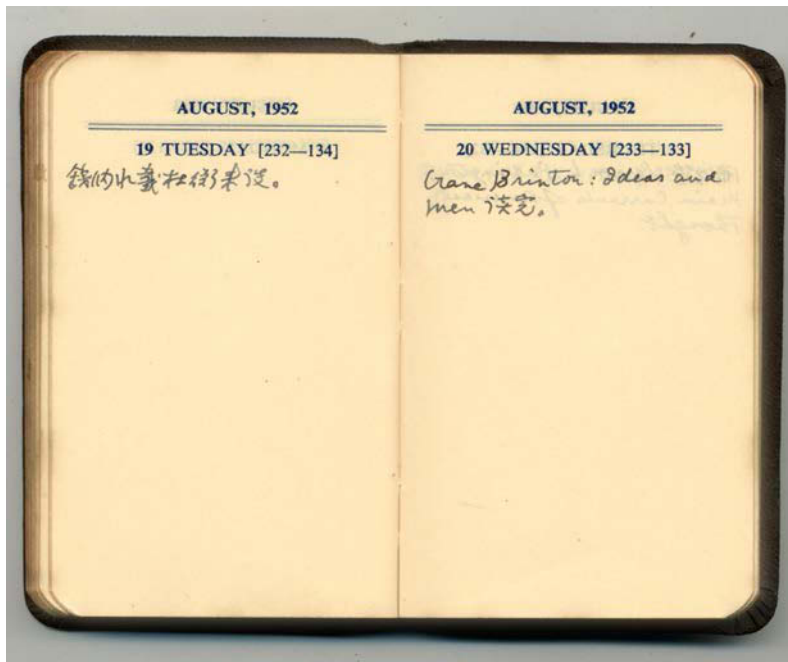 AUGUST, 1952
19 TUESDAY [232—134]
來谈。
AUGUST, 1952
20 WEDNESDAY [233—133]
Crane Brinton: Ideas and
men 读完。